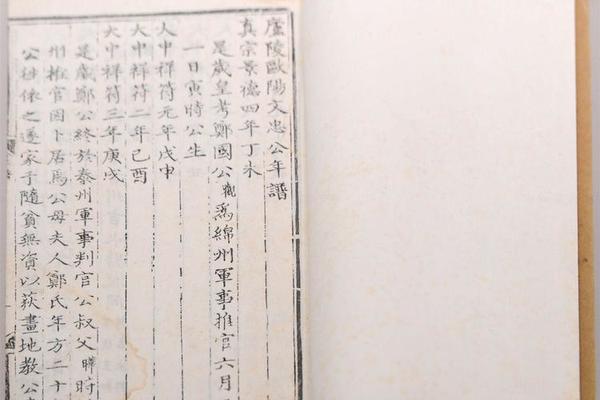 廬陵歐陽文忠公年譜
真宗景德四年丁未
是歲皇考鄭國公觀爲綿州軍事推官六月
一日寅時公生
大中祥符元年戊申
大中祥符二年己酉
大中祥符三年庚戌
是歲鄭公終於泰州軍事判官公叔父曄時
州推官因卜居焉公母夫人鄭氏年方二十
公往依之遂家于隨貧無資以荻畫地教公